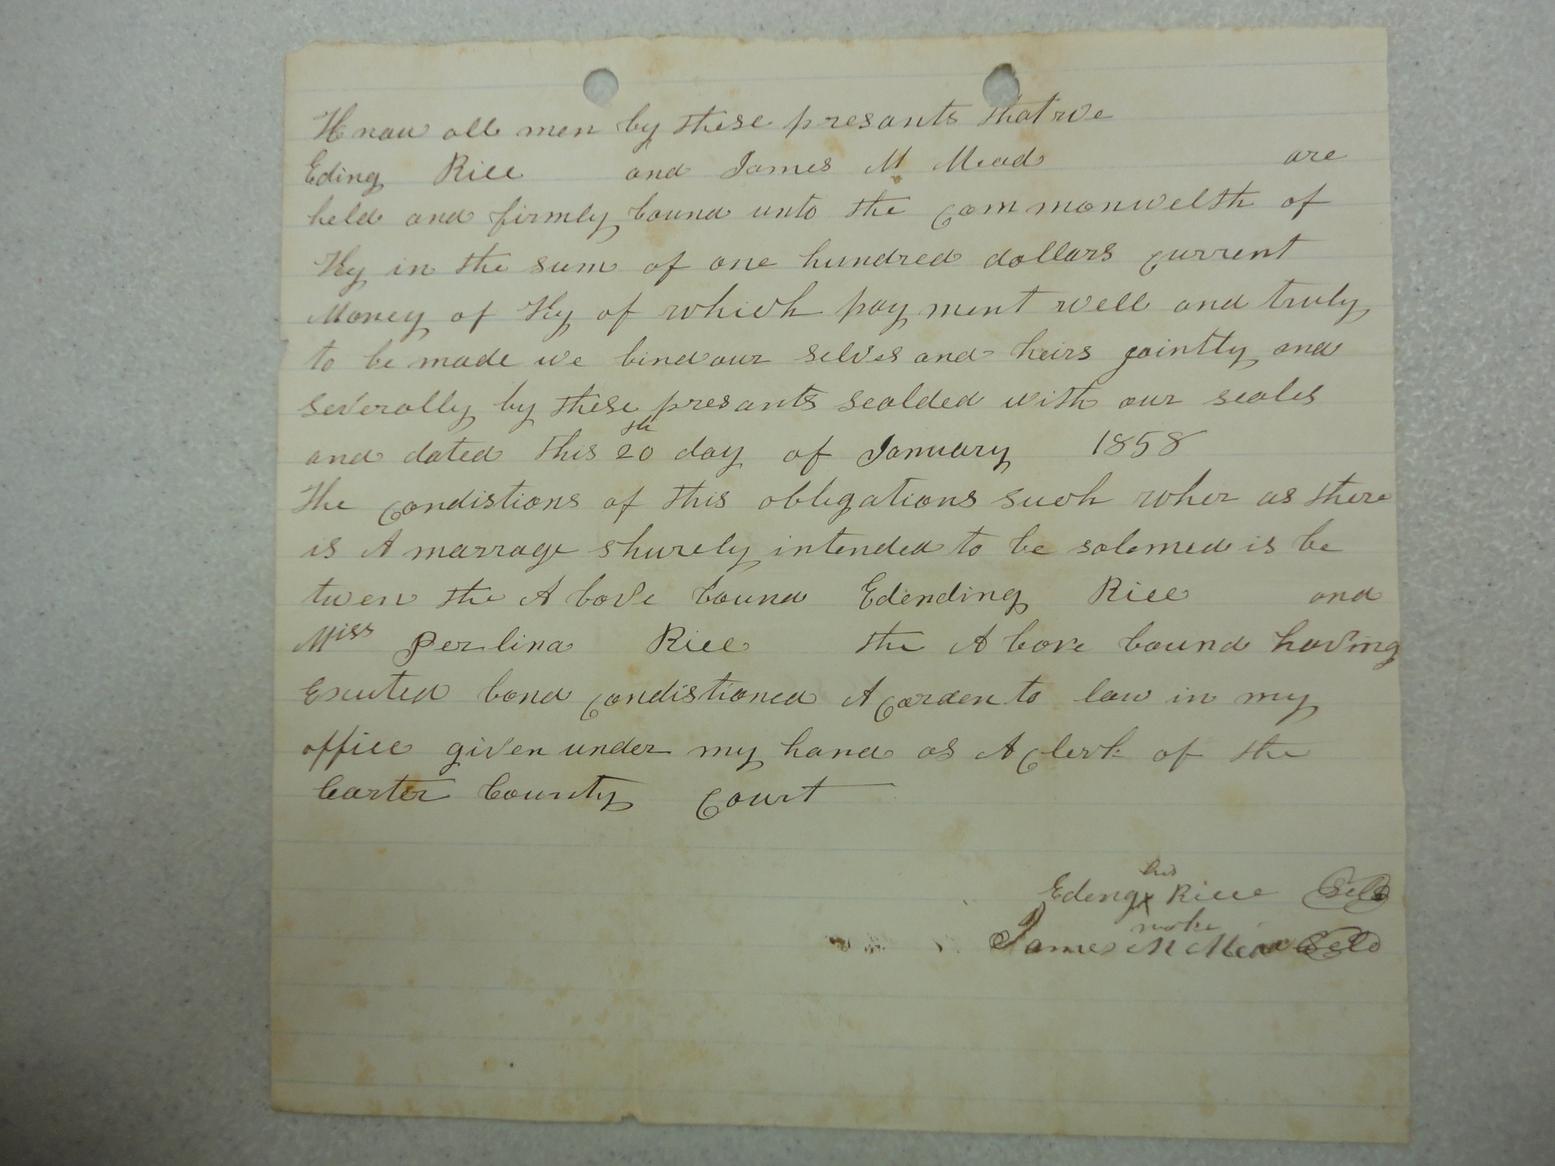 Know all men by these presants that we
Eding Rice and James M Mead are
held and firmly bound unto the Commonwelth of
Ky in the sum of one hundred dollars current
Money of Ky of which pay ment well and truly
to be made we bind our selves and heirs jointly and
severally by these presants sealded with our seals
and dated this 20th day of January 1858
the condistions of this obligations such wher as there
is A marrage shurely intended to be solemed is be
twen the A bove bound Edending Rice and
Miss Perlina Rice the A bove bound having
Excuted bond condistioned A carden to law in my
office given under my hand as A clerk of the
Carter County Court
his
Edeng x Rice Seld
marke
James M Mead Seld